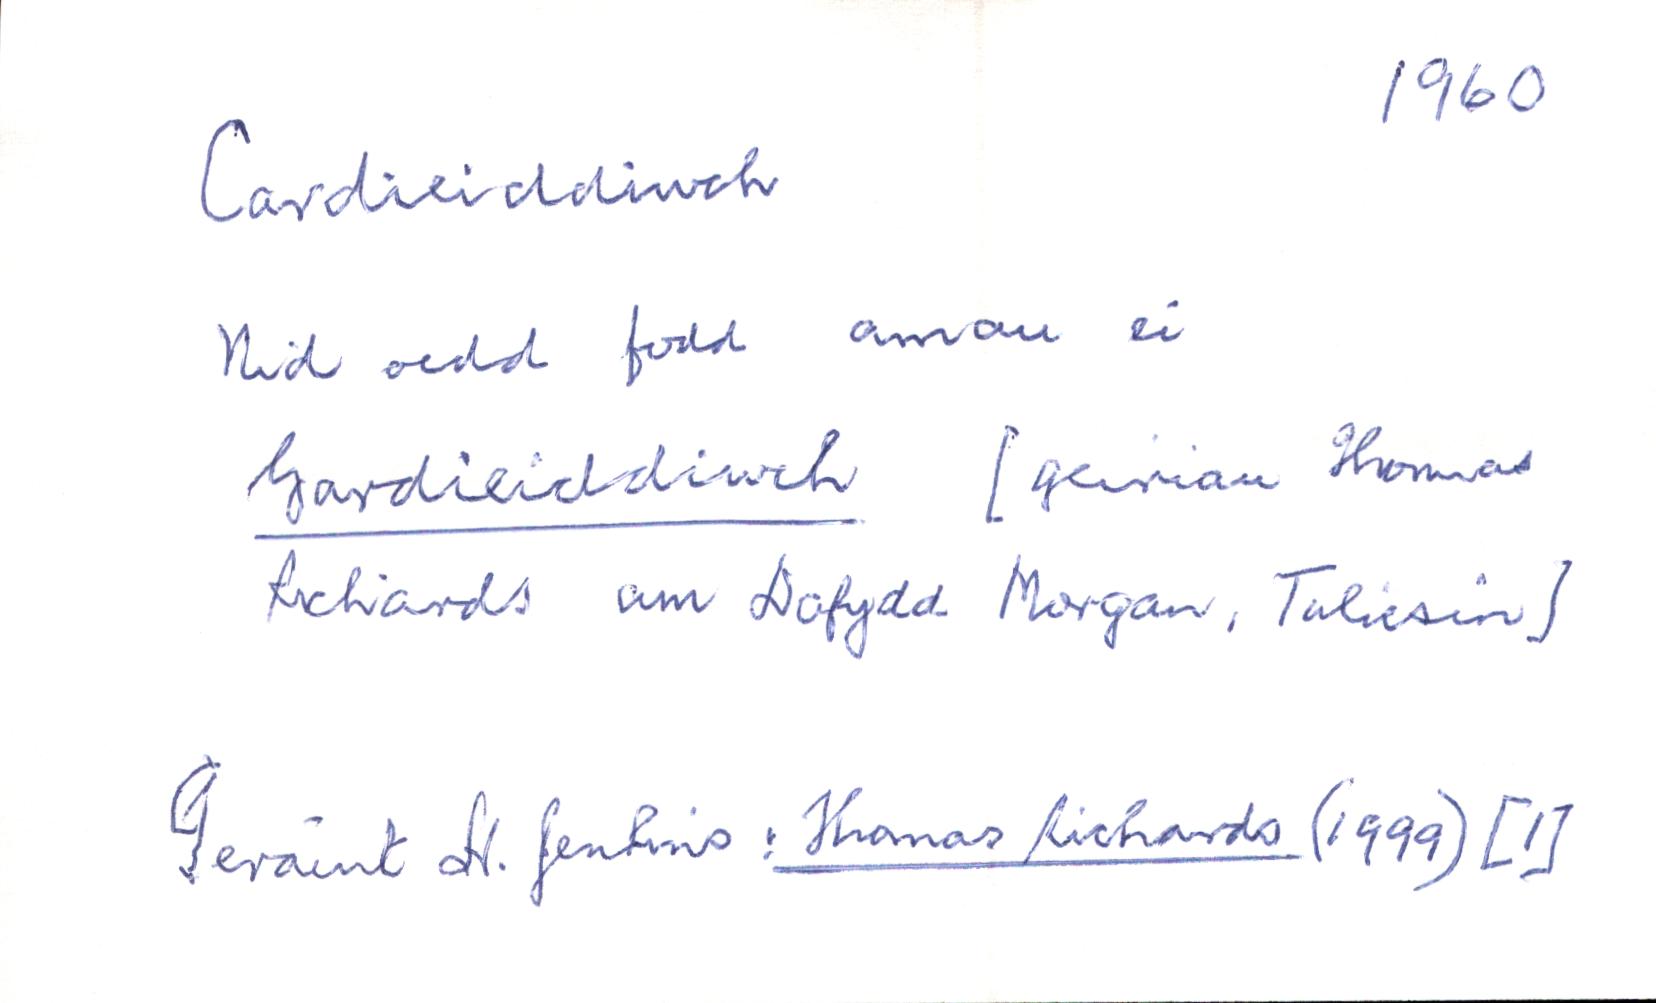 1960
Cardieiddiwch
Nid oedd fodd amau ei
Gardieiddiwch [geiriau Thomas
Richards am Dafydd Morgan, Taliesin]
Geraint H. Jenkins : Thomas Richards (1999) [1]